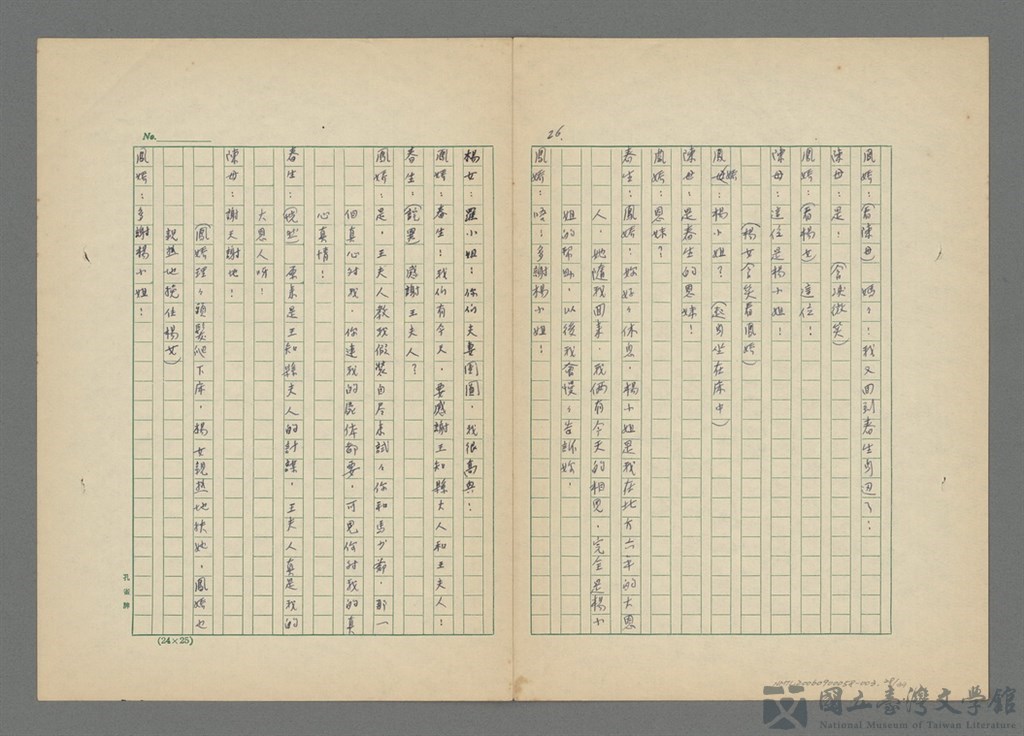 26.
鳳嬌：（看陳母）媽媽：我又回到春生身邊了：
陳母：是：（含淚微笑）
鳳嬌：（看楊女）這位：
陳母：這位是楊小姐：
（楊女含笑看鳳嬌）
鳳嬌：楊小姐？（起身坐在床中）
陳母：是春生的恩妹：
鳳嬌：恩妹？
春生：鳳嬌：妳好好休息，楊小姐是我在北方六年的大恩
人，她隨我回來，我倆有今天的相見，完全是楊小
姐的幫助，以後我會慢慢告訴妳，
鳳嬌：唔：多謝楊小姐：
楊女：羅小姐：你們夫妻團圓，我很高興：
鳳嬌：春生：我們有今天，要感謝王知縣大人和王夫人：
春生：（詫異）感謝王夫人？
鳳嬌：是，王夫人教我做裝自尽來試試你和馬少爺，那一
個真心對我，你連我的屍体都要，可見你對我的真
心真情：
春生：（恍然）原來是王知縣夫人的計謀，王夫人真是我的
大恩人呀：
陳母：謝天謝地：
（鳳嬌理理頭髮爬下床，楊女親熱地扶她，鳳嬌也
親熱地挽住楊女）
鳳嬌：多謝楊小姐：
No.
孔雀牌
(24×25)
國立臺灣文學館
National Museum of Taiwan Literature